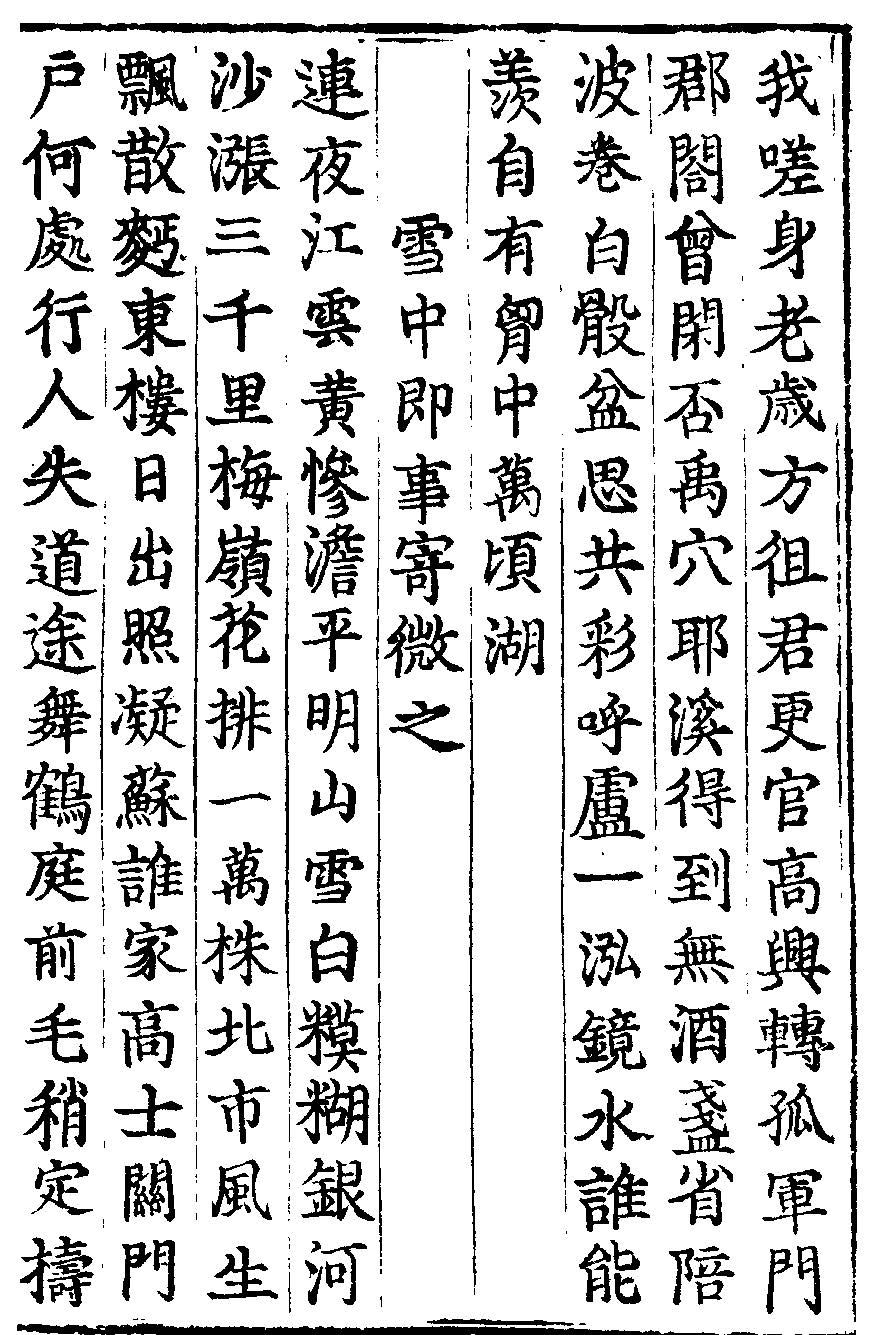 我嗟身老歳方徂君更官高興轉孤軍門
郡閤曾閑否禹穴耶溪得到無酒盞省陪
波卷白骰盆思共彩呼盧一泓鏡水誰能
羨自有胷中萬頃湖
雪中即事寄微之
連夜江雲黄慘澹平明山雪白糢糊銀河
沙漲三千里梅嶺花排一萬株北市風生
飄散麫東樓日出照凝蘇誰家高士關門
戸何處行人失道途舞鶴庭前毛稍定擣